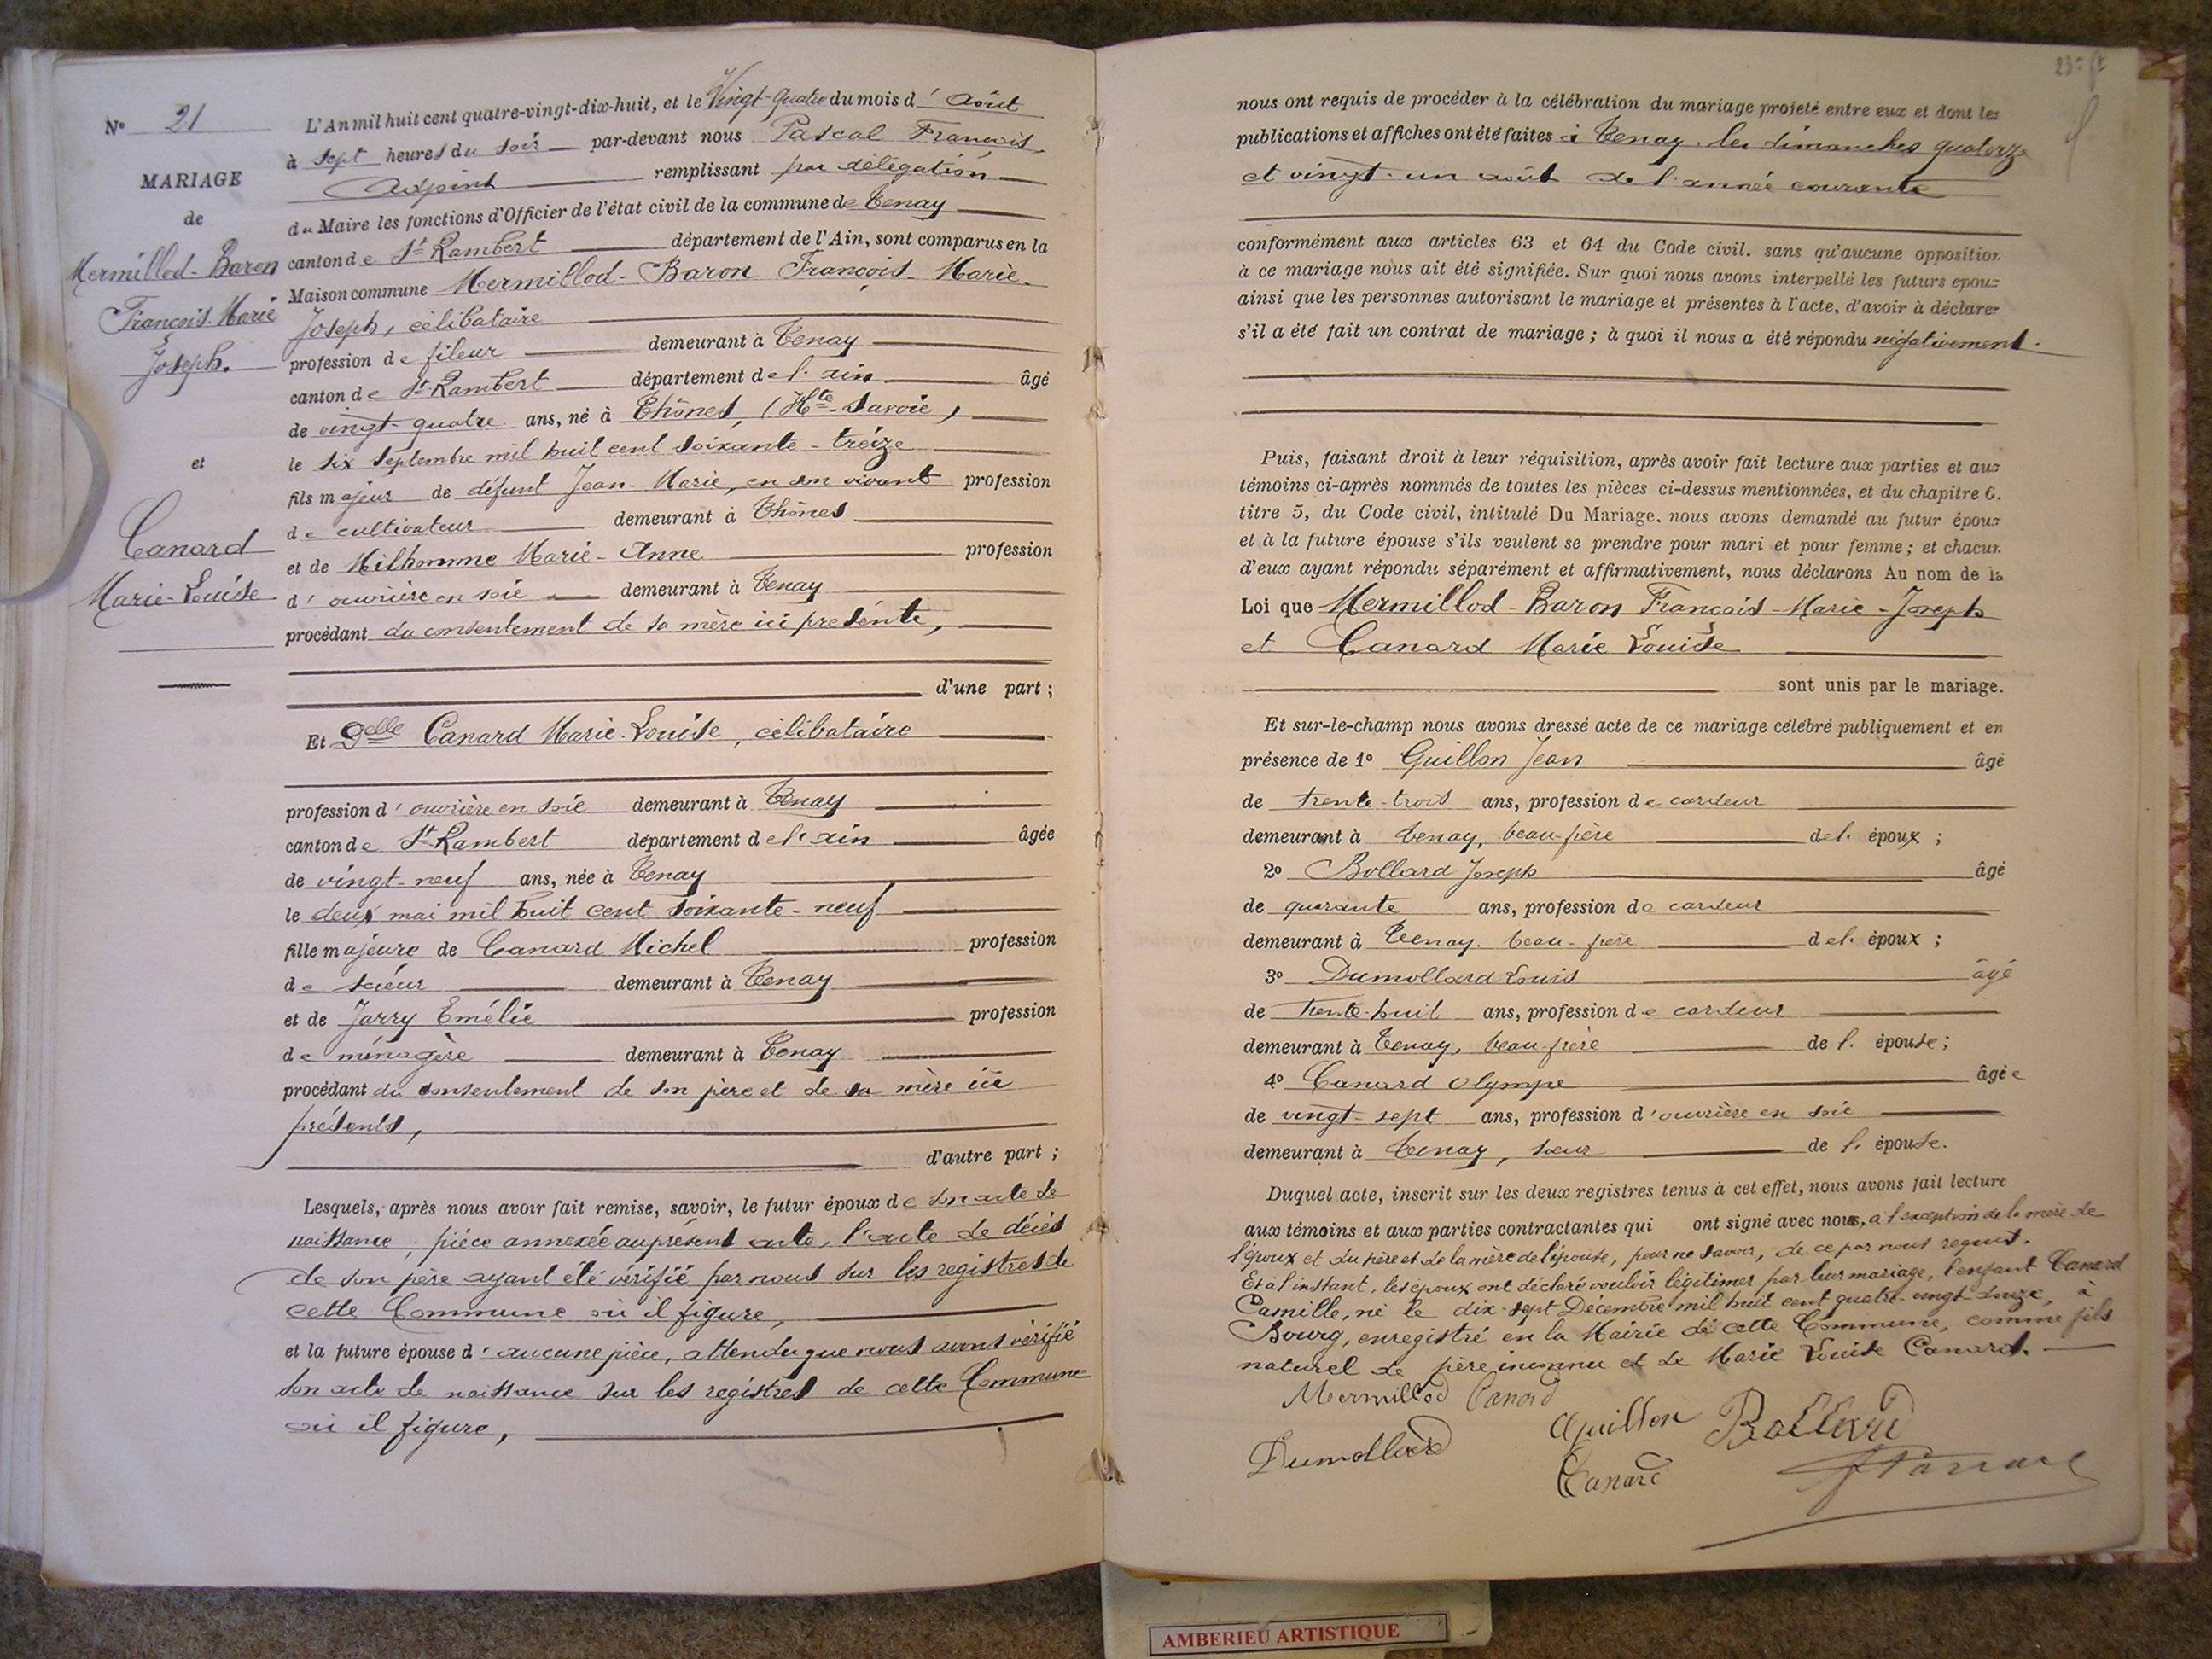 N° 21
MARIAGE
de
Mermillod-Baron
François-Marie
Joseph.
et
Canard
Marie-Louise
L'An mil huit cent quatre-vingt-dix-huit, et le Vingt-quatre du mois d'Août
à sept heures du soir par-devant nous Pascal François,
Adjoint remplissant par délégation
du Maire les fonctions d'Officier de l'état civil de la commune de Tenay
canton de St-Rambert département de l'Ain, sont comparus en la
Maison commune Mermillod-Baron François-Marie-
Joseph, célibataire
profession de fileur demeurant à Tenay
canton de St-Rambert département de l'ain âgé
de vingt-quatre ans, né à Thônes, (Hte-Savoie)
le six septembre mil huit cent soixante-treize
fils majeur de défunt Jean-Marie, en son vivant profession
de cultivateur demeurant à Thônes
et de Milhomme Marie-Anne profession
d'ouvrière en soie demeurant à Tenay
procédant du consentement de sa mère ici présente,
d'une part ;
Et Delle Canard Marie-Louise, célibataire
profession d'ouvrière en soie demeurant à Tenay
canton de St-Rambert département de l'ain âgée
de vingt-neuf ans, née à Tenay
le deux mai mil huit cent soixante-neuf
fille majeure de Canard Michel profession
de scieur demeurant à Tenay
et de Jarry Emélie profession
de ménagère demeurant à Tenay
procédant du consentement de son père et de sa mère ici
présents,
d'autre part ;
Lesquels, après nous avoir fait remise, savoir, le futur époux de son acte de
naissance, pièce annexée au présent acte, l'acte de décès
de son père ayant été vérifié par nous sur les registres de
cette Commune où il figure,
et la future épouse d'aucune pièce, attendu que nous avons vérifié
son acte de naissance sur les registres de cette Commune
où il figure,
nous ont requis de procéder à la célébration du mariage projeté entre eux et dont les
publications et affiches ont été faites à Tenay, les dimanches quatorze
et vingt-un août de l'année courante
conformément aux articles 63 et 64 du Code civil, sans qu'aucune opposition
à ce mariage nous ait été signifiée. Sur quoi nous avons interpellé les futurs époux
ainsi que les personnes autorisant le mariage et présentes à l'acte, d'avoir à déclarer
s'il a été fait un contrat de mariage ; à quoi il nous a été répondu négativement.
Puis, faisant droit à leur réquisition, après avoir fait lecture aux parties et aux
témoins ci-après nommés de toutes les pièces ci-dessus mentionnées, et du chapitre 6,
titre 5, du Code civil, intitulé Du Mariage, nous avons demandé au futur époux
et à la future épouse s'ils veulent se prendre pour mari et pour femme ; et chacun
d'eux ayant répondu séparément et affirmativement, nous déclarons Au nom de la
Loi que Mermillod-Baron François-Marie-Joseph
et Canard Marie Louise
sont unis par le mariage.
Et sur-le-champ nous avons dressé acte de ce mariage célébré publiquement et en
présence de 1° Guillon Jean âgé
de trente-trois ans, profession de cardeur
demeurant à Tenay, beau-frère de l'époux ;
2° Bollard Joseph âgé
de quarante ans, profession de cardeur
demeurant à Tenay, beau-frère de l'époux ;
3° Dumollard Louis âgé
de trente-huit ans, profession de cardeur
demeurant à Tenay, beau-frère de l'épouse ;
4° Canard Olympe âgée
de vingt-sept ans, profession d'ouvrière en soie
demeurant à Tenay, sœur de l'épouse.
Duquel acte, inscrit sur les deux registres tenus à cet effet, nous avons fait lecture
aux témoins et aux parties contractantes qui ont signé avec nous, à l'exception de la mère de
l'époux et du père et de la mère de l'épouse, pour ne savoir, de ce par nous requis.
Et à l'instant, les époux ont déclaré vouloir légitimer par leur mariage, l'enfant Canard
Camille, né le dix-sept Décembre mil huit cent quatre-vingt-douze, à
Bourg, enregistré en la Mairie de cette Commune, comme fils
naturel de père inconnu et de Marie Louise Canard.
Mermillod Canard
Guillon Bollard
Dumollard
Canard
AMBERIEU ARTISTIQUE